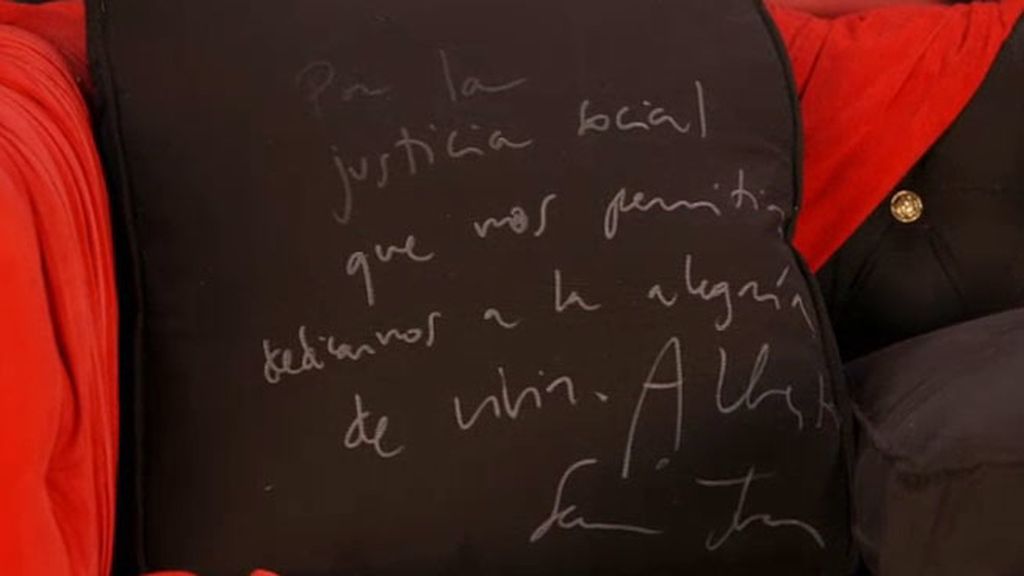 Por la
justicia social
que nos permitía
dedicarnos a la alegría
de vivir. Alberto
San Juan